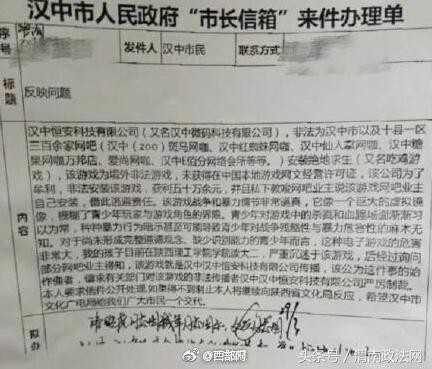 汉中市人民政府“市长信箱”来件办理单
序号
发件人
汉中市民
联系方式
标题
反映问题
内容
汉中恒安科技有限公司（又名汉中微码科技有限公司），非法为汉中市以及十县一区
三百余家网吧（汉中（zoo）斑马网咖、汉中红蜘蛛网咖、汉中仙人掌网咖、汉中糖
果网咖万邦店、爱尚网咖、汉中E佰分网络会所等等。）安装绝地求生（又名吃鸡游
戏），该游戏为境外非法游戏，未获得在中国本地游戏网文经营许可证，该公司为了
牟利，非法安装该游戏，获利五十万余元，并且私下教唆网吧业主说该游戏网吧业主
自己安装，借此迅避责任。该游戏战争和暴力情节非常逼真，它像一个巨大的虚拟
镜像，模糊了青少年玩家与游戏角色的界限。青少年对游戏中的杀戮和血腥场面渐渐习
以为常，种种暴力行为暗示甚至可能导致青少年对战争残酷性与暴力危害性的麻木无
感。对于尚未形成完整道德观念、缺少识别能力的青少年而言，这种电子游戏的危害
非常大，我的孩子目前在陕西理工学院学院读大二，严重沉迷于该游戏，后经过询问
部分网吧业主得知，该游戏就是汉中汉中恒安科技有限公司传播，该公为这件事的始
作俑者，请求有关部门对该游戏的非法传播者汉中汉中恒安科技有限公司严厉制裁。
本人要求信件公开处理，如果得不到制止本人将继续向陕西省文化局反应，希望汉中市
文化广电局给我们广大市民一个交代。
拟办
@西部网
头条号／渭南政法网